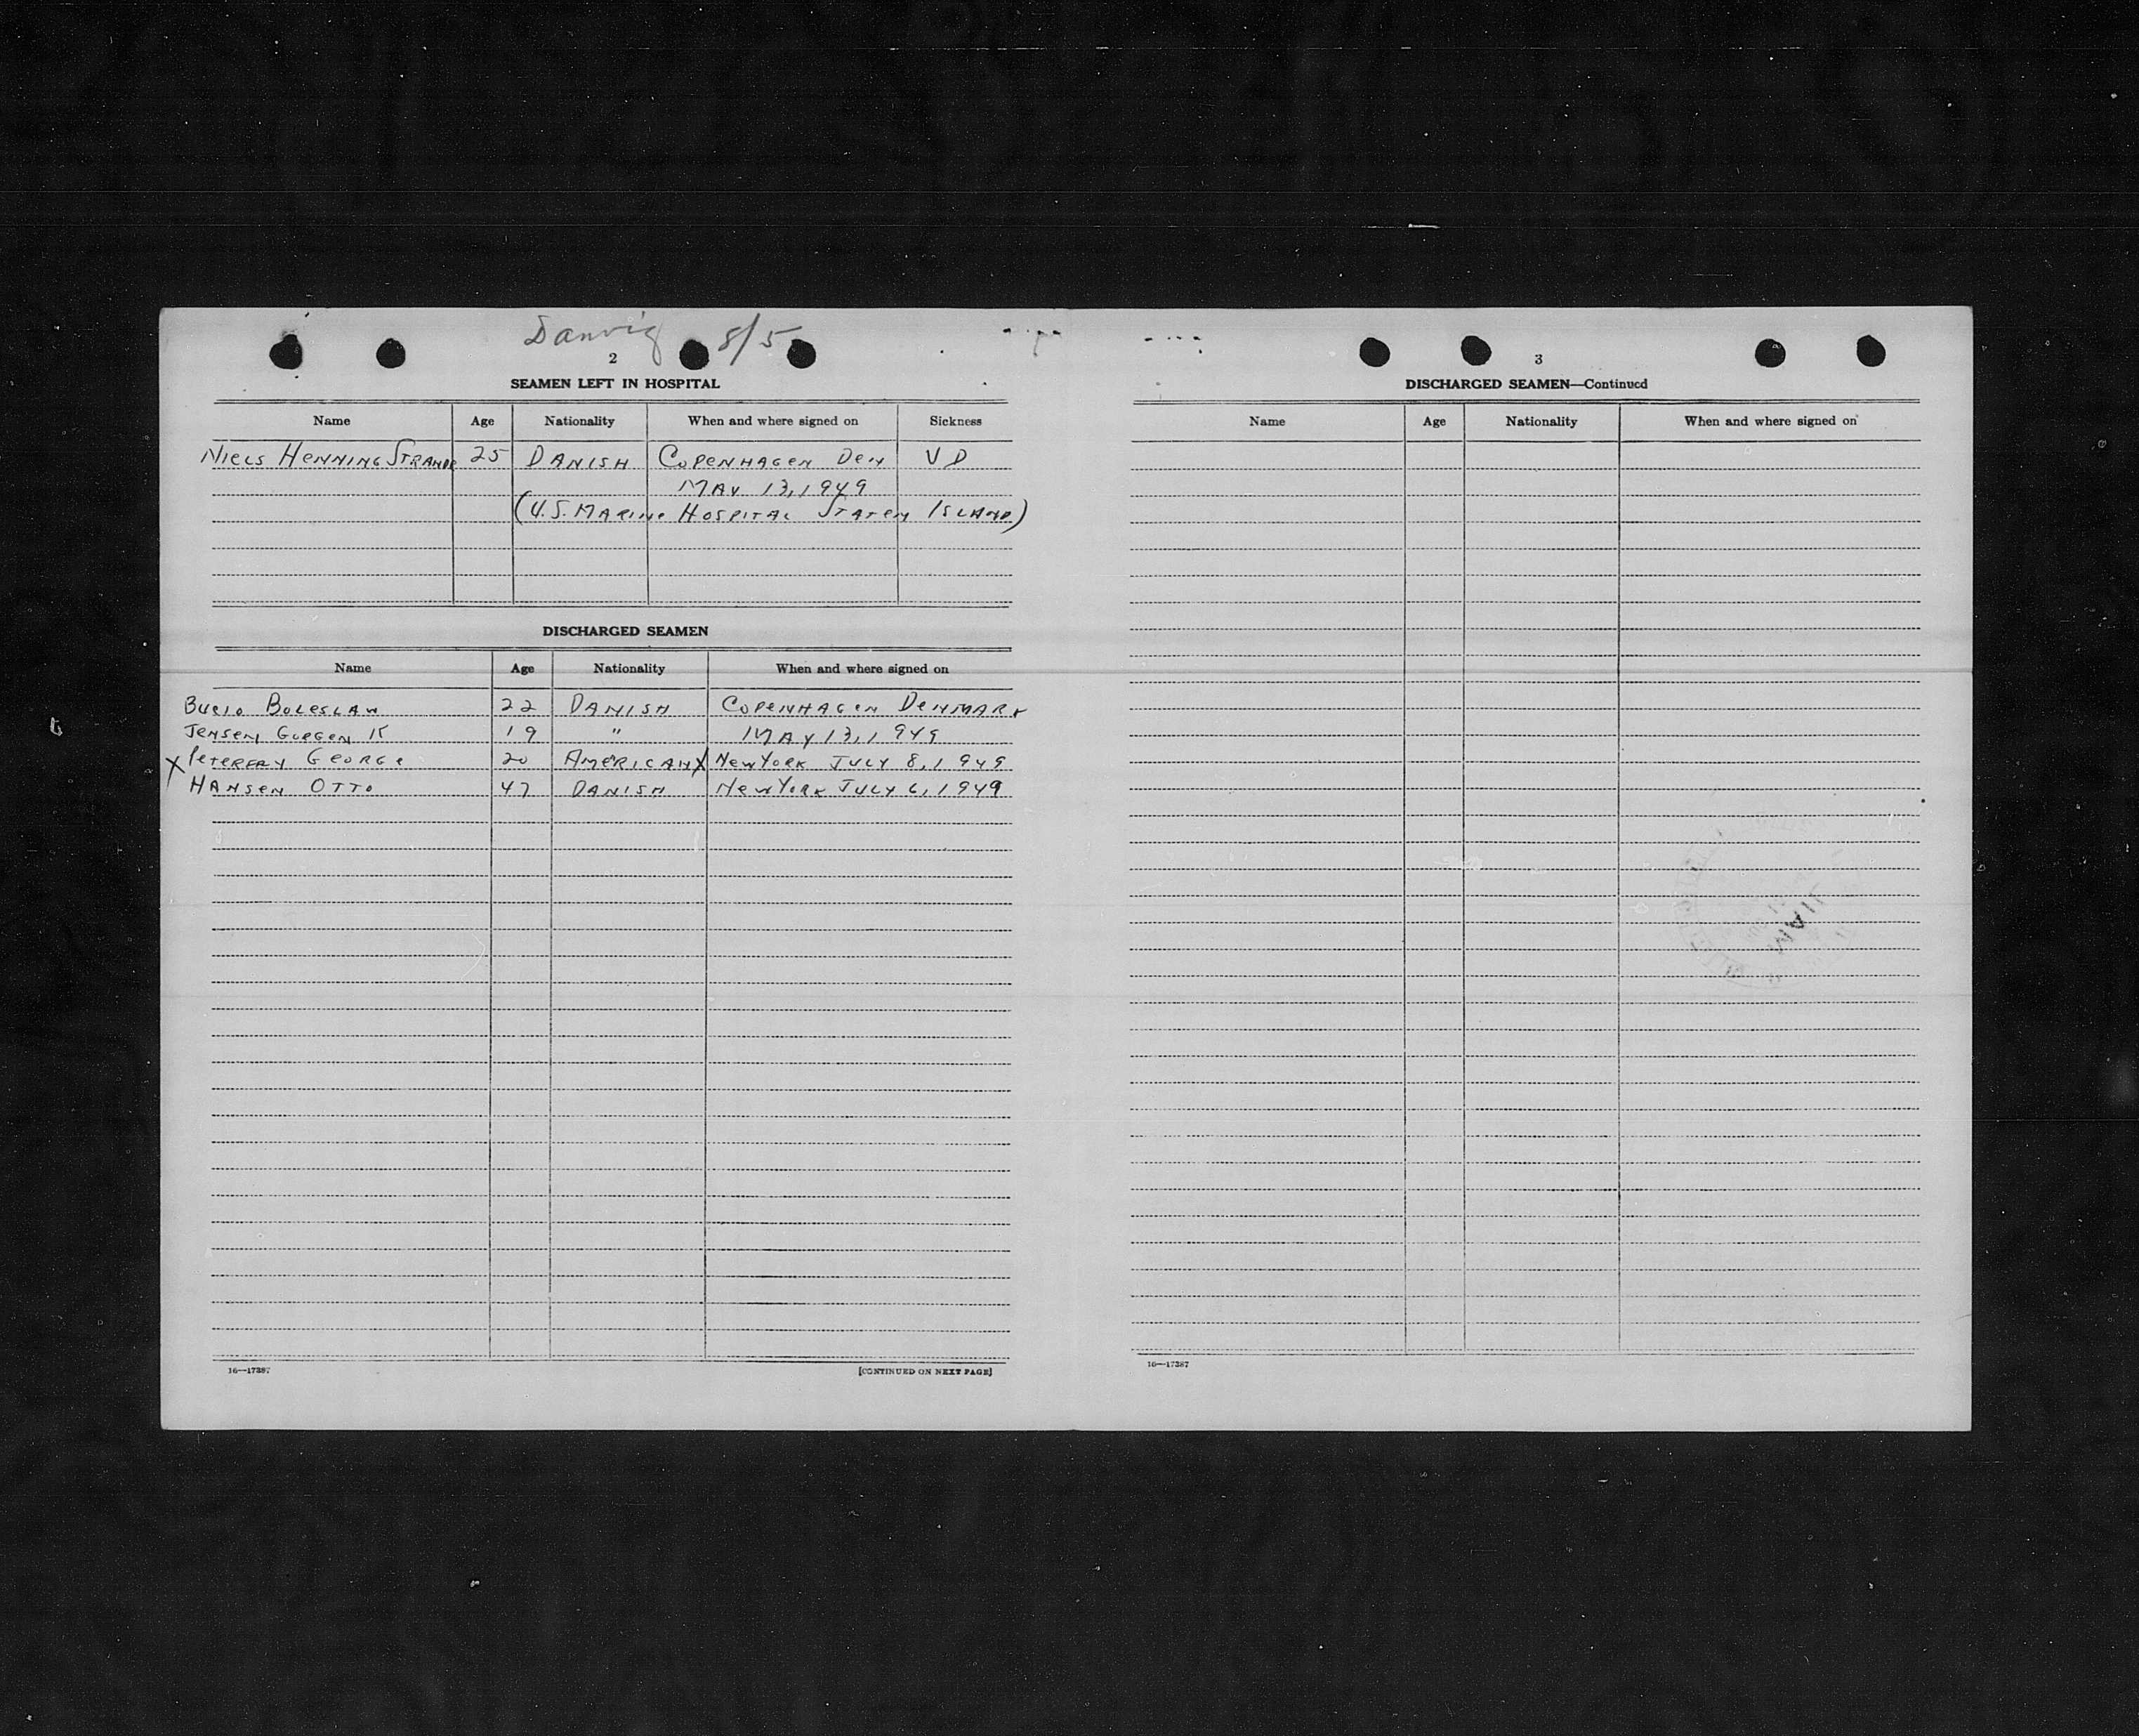 Danvig 8/5
2
SEAMEN LEFT IN HOSPITAL
Name Age Nationality When and where signed on Sickness
NIELS HENNING STRANDE 25 DANISH COPENHAGEN DEN VD
MAY 13, 1949
(U.S. MARINE HOSPITAL STATEN ISLAND)
DISCHARGED SEAMEN
Name Age Nationality When and where signed on
BOLESLAW 22 DANISH COPENHAGEN DENMARK
JENSEN GORGEN K 19 " MAY 13, 1949
X PETERFAY GEORGE 20 AMERICAN X NEW YORK JULY 8, 1949
HANSEN OTTO 47 DANISH NEW YORK JULY 6, 1949
16—17387 [CONTINUED ON NEXT PAGE]
3
DISCHARGED SEAMEN—Continued
Name Age Nationality When and where signed on
16—17387